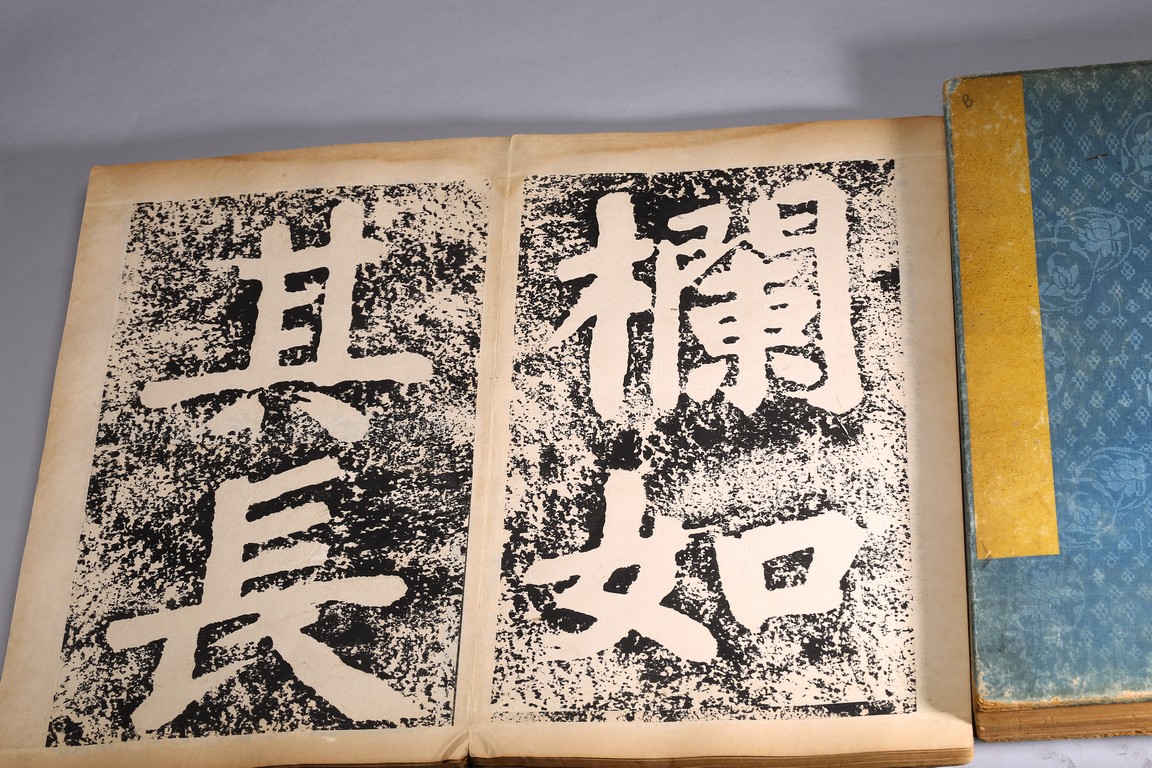 欄如
其長
B